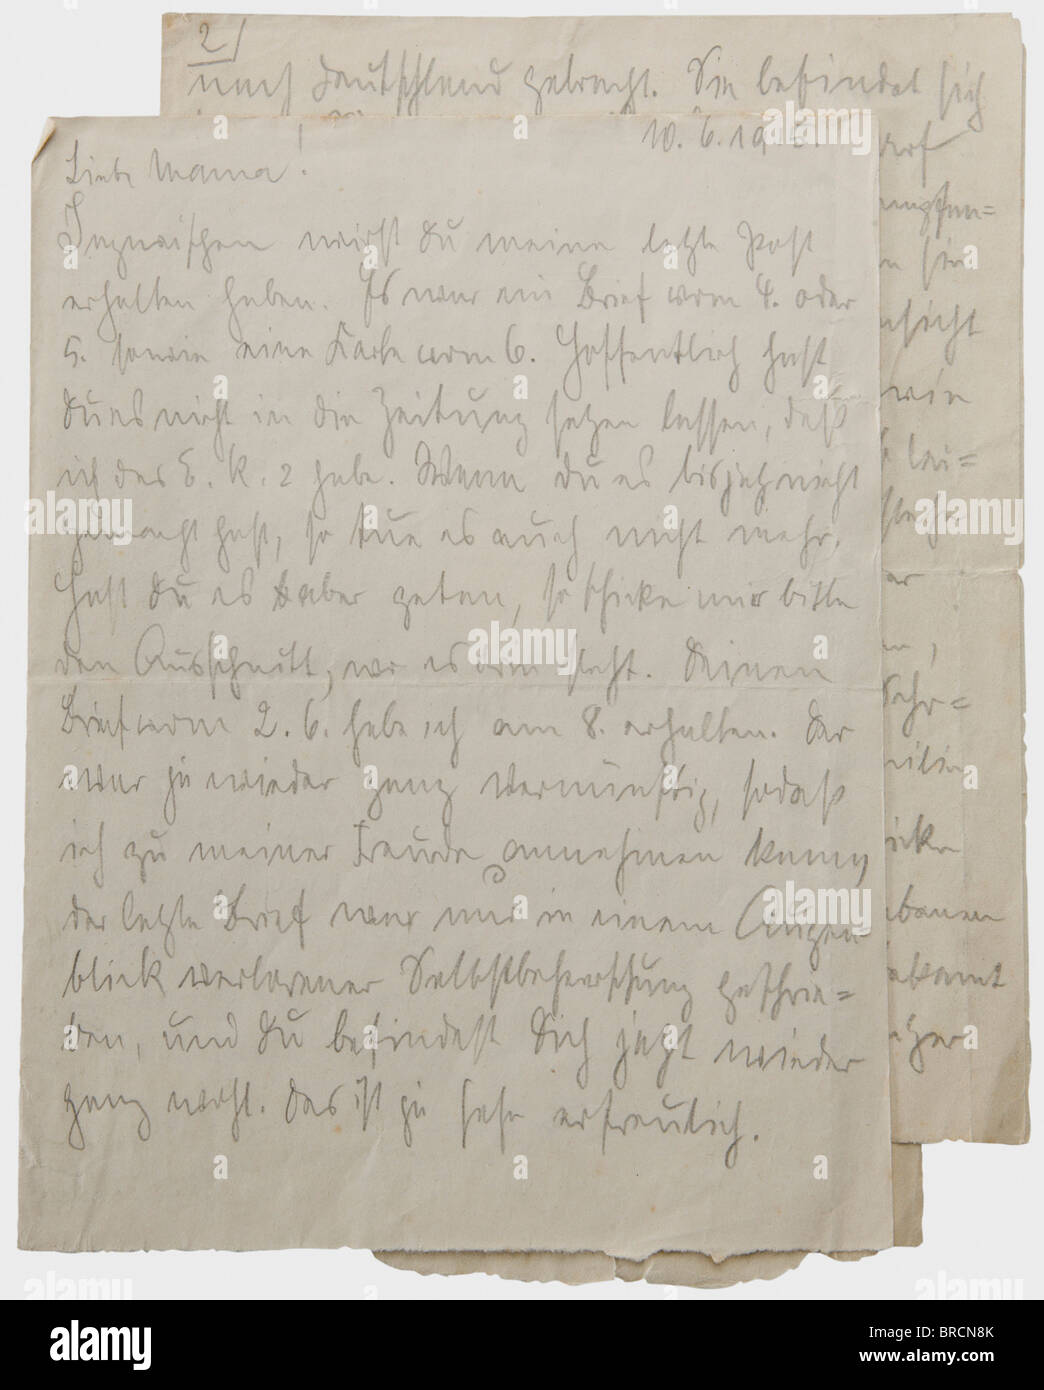 2)
nach Deutschland gebracht. Sie befindet sich
10. 6. 19
Liebe Mama!
Inzwischen wirst Du meine letzte Post
erhalten haben. Es war ein Brief vom 4. oder
5. sowie eine Karte vom 6. Hoffentlich hast
Du es nicht in die Zeitung setzen lassen, daß
ich das E. K. 2 habe. Wenn Du es bis jetzt nicht
gemacht hast, so tue es auch nicht mehr.
Hast Du es aber getan, so schicke mir bitte
den Ausschnitt, wo es drin steht. Deinen
Brief vom 2. 6. habe ich am 8. erhalten. Der
war ja wieder ganz vernünftig, sodaß
ich zu meiner Freude annehmen kann,
der letzte Brief war nur in einem Augen
blick verlorener Selbstbeherrschung geschrie=
ben, und Du befindest Dich jetzt wieder
ganz wohl. Das ist ja sehr erfreulich.
alamy
Image ID: BRCN8K
www.alamy.com